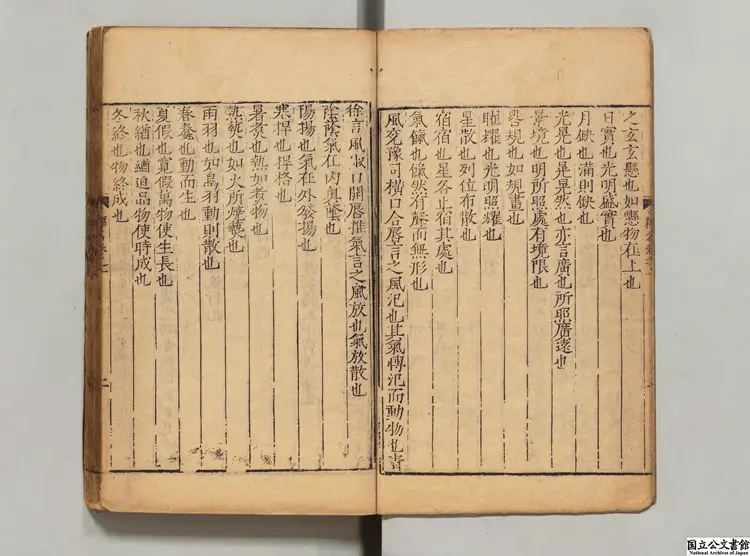 之玄玄懸也如懸物在上也
日實也光明盛實也
月缺也滿則缺也
光晃也晃晃然也亦言廣也所照廣遠也
景境也明所照處有境限也
晷規也如規畫也
曜耀也光明照耀也
星散也列位布散也
宿宿也星各止宿其處也
氣餼也餼然有聲而無形也
風兖豫司橫口合脣言之風氾也其氣博氾而動物也青
徐言風踧口開脣推氣言之風放也氣放散也
陰蔭也氣在內奧蔭也
陽揚也氣在外發揚也
寒捍也捍格也
暑煮也熱如煮物也
熱爇也如火所燒爇也
雨羽也如鳥羽動則散也
春蠢也動而生也
夏假也寬假萬物使生長也
秋緧也緧迫品物使時成也
冬終也物終成也
国立公文書館
National Archives of Japan